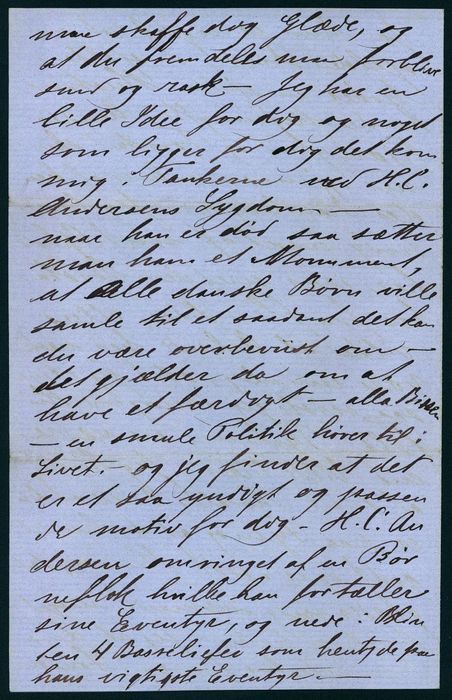 maa skaffe dig Glæde, og
at du fremdeles maa forblive
sund og rask – Jeg har en
lille Idee for dig og noget
som ligger for dig det kom
mig i Tankerne ved H.C.
Andersens Sygdom –
naar han er død saa sætter
man ham et Monument,
at alle danske Børn ville
samle til et saadant det kan
du være overbeviist om –
det gjælder da om at
have et færdigt – alla Bissen
– en smule Politik hører til i
Livet. – og jeg finder at det
er et saa yndigt og passen
de motiv for dig – H.C. An
dersen omringet af en Bør
neflok hvilke han fortæller
sine Eventyr, og nede i Plin
ten 4 Basreliefer som hentyde paa
hans vigtigste Eventyr. –